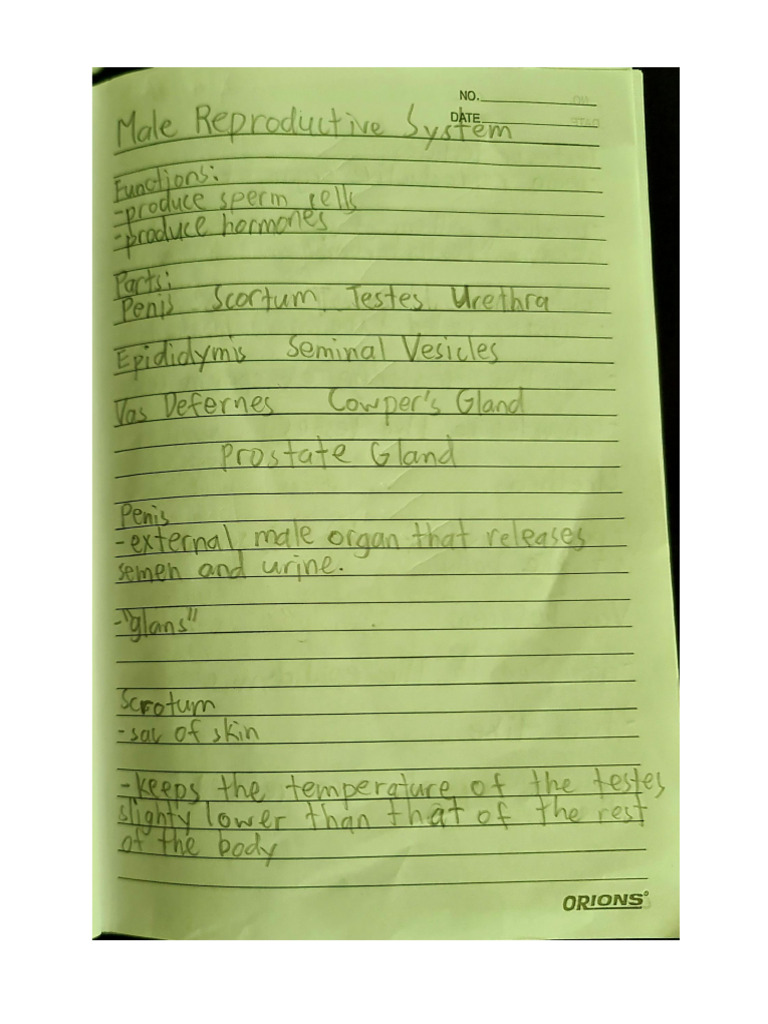 NO.
DATE
Male Reproductive System
Functions:
-produce sperm cells
-produce hormones
Parts:
Penis Scortum Testes Urethra
Epididymis Seminal Vesicles
Vas Defernes Cowper's Gland
Prostate Gland
Penis
-external male organ that releases
semen and urine.
-"glans"
Scrotum
-sac of skin
-keeps the temperature of the testes
slighty lower than that of the rest
of the body
ORIONS